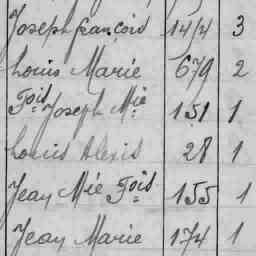 Joseph françois 1414 3
Louis Marie 679 2
Fois Joseph Mie 151 1
Louis Alexis 28 1
Jean Mie Fois 155 1
Jean Marie 174 1